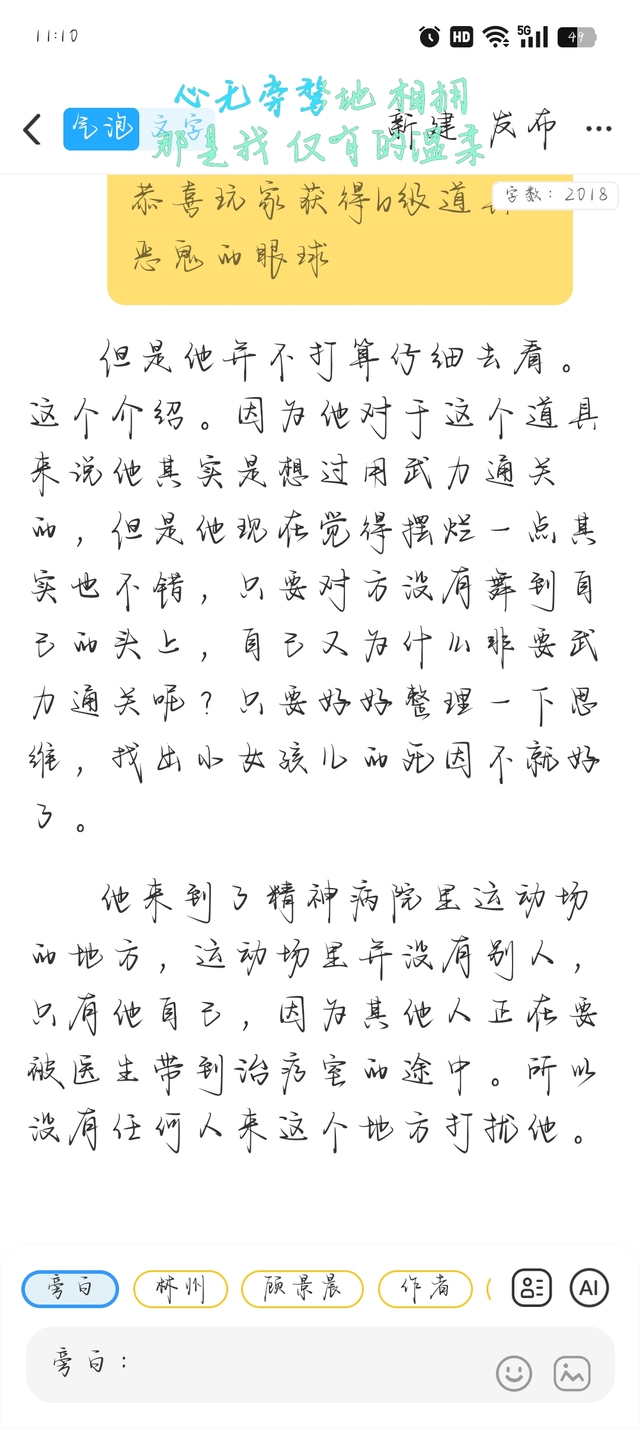 11:10
HD
5G
49
心无旁骛地相拥
那是我仅有的温柔
气泡 文字 新建 发布
字数：2018
恭喜玩家获得b级道
恶鬼的眼球
但是他并不打算仔细去看。
这个介绍。因为他对于这个道具
来说他其实是想过用武力通关
的，但是他现在觉得摆烂一点其
实也不错，只要对方没有舞到自
己的头上，自己又为什么非要武
力通关呢？只要好好整理一下思
维，找出小女孩儿的死因不就好
了。
他来到了精神病院里运动场
的地方，运动场里并没有别人，
只有他自己，因为其他人正在要
被医生带到治疗室的途中。所以
没有任何人来这个地方打扰他。
旁白 林州 顾景晨 作者 AI
旁白：